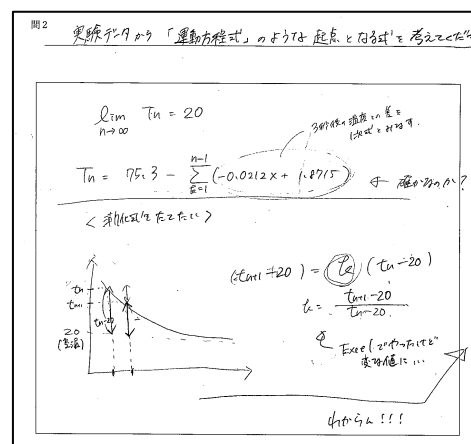 問2
実験データから「運動方程式」のような起点となる式を考えてくだ
lim Tn = 20
n→∞
3秒後の温度との差を
1次式とみなす.
Tn = 75.3 - Σ_{k=1}^{n-1} (-0.0212x + 1.8715)
← 確かなのか?
<漸化式をたてたい>
(tn+1 - 20) = k (tn - 20)
k = (tn+1 - 20)/(tn - 20)
tn
tn+1
tn-20
20
(室温)
Excelでやったけど
変な値に...
わからん!!!